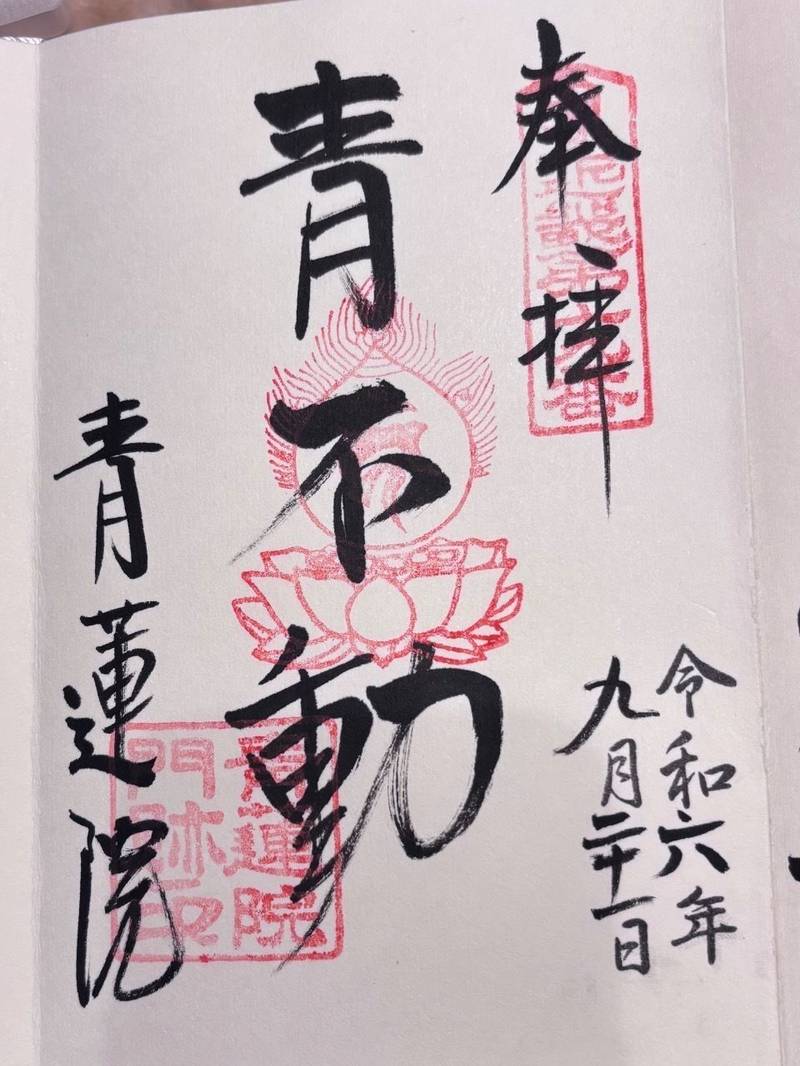 奉拝
令和六年
九月二十一日
青不動
青蓮院
青蓮院
門跡印